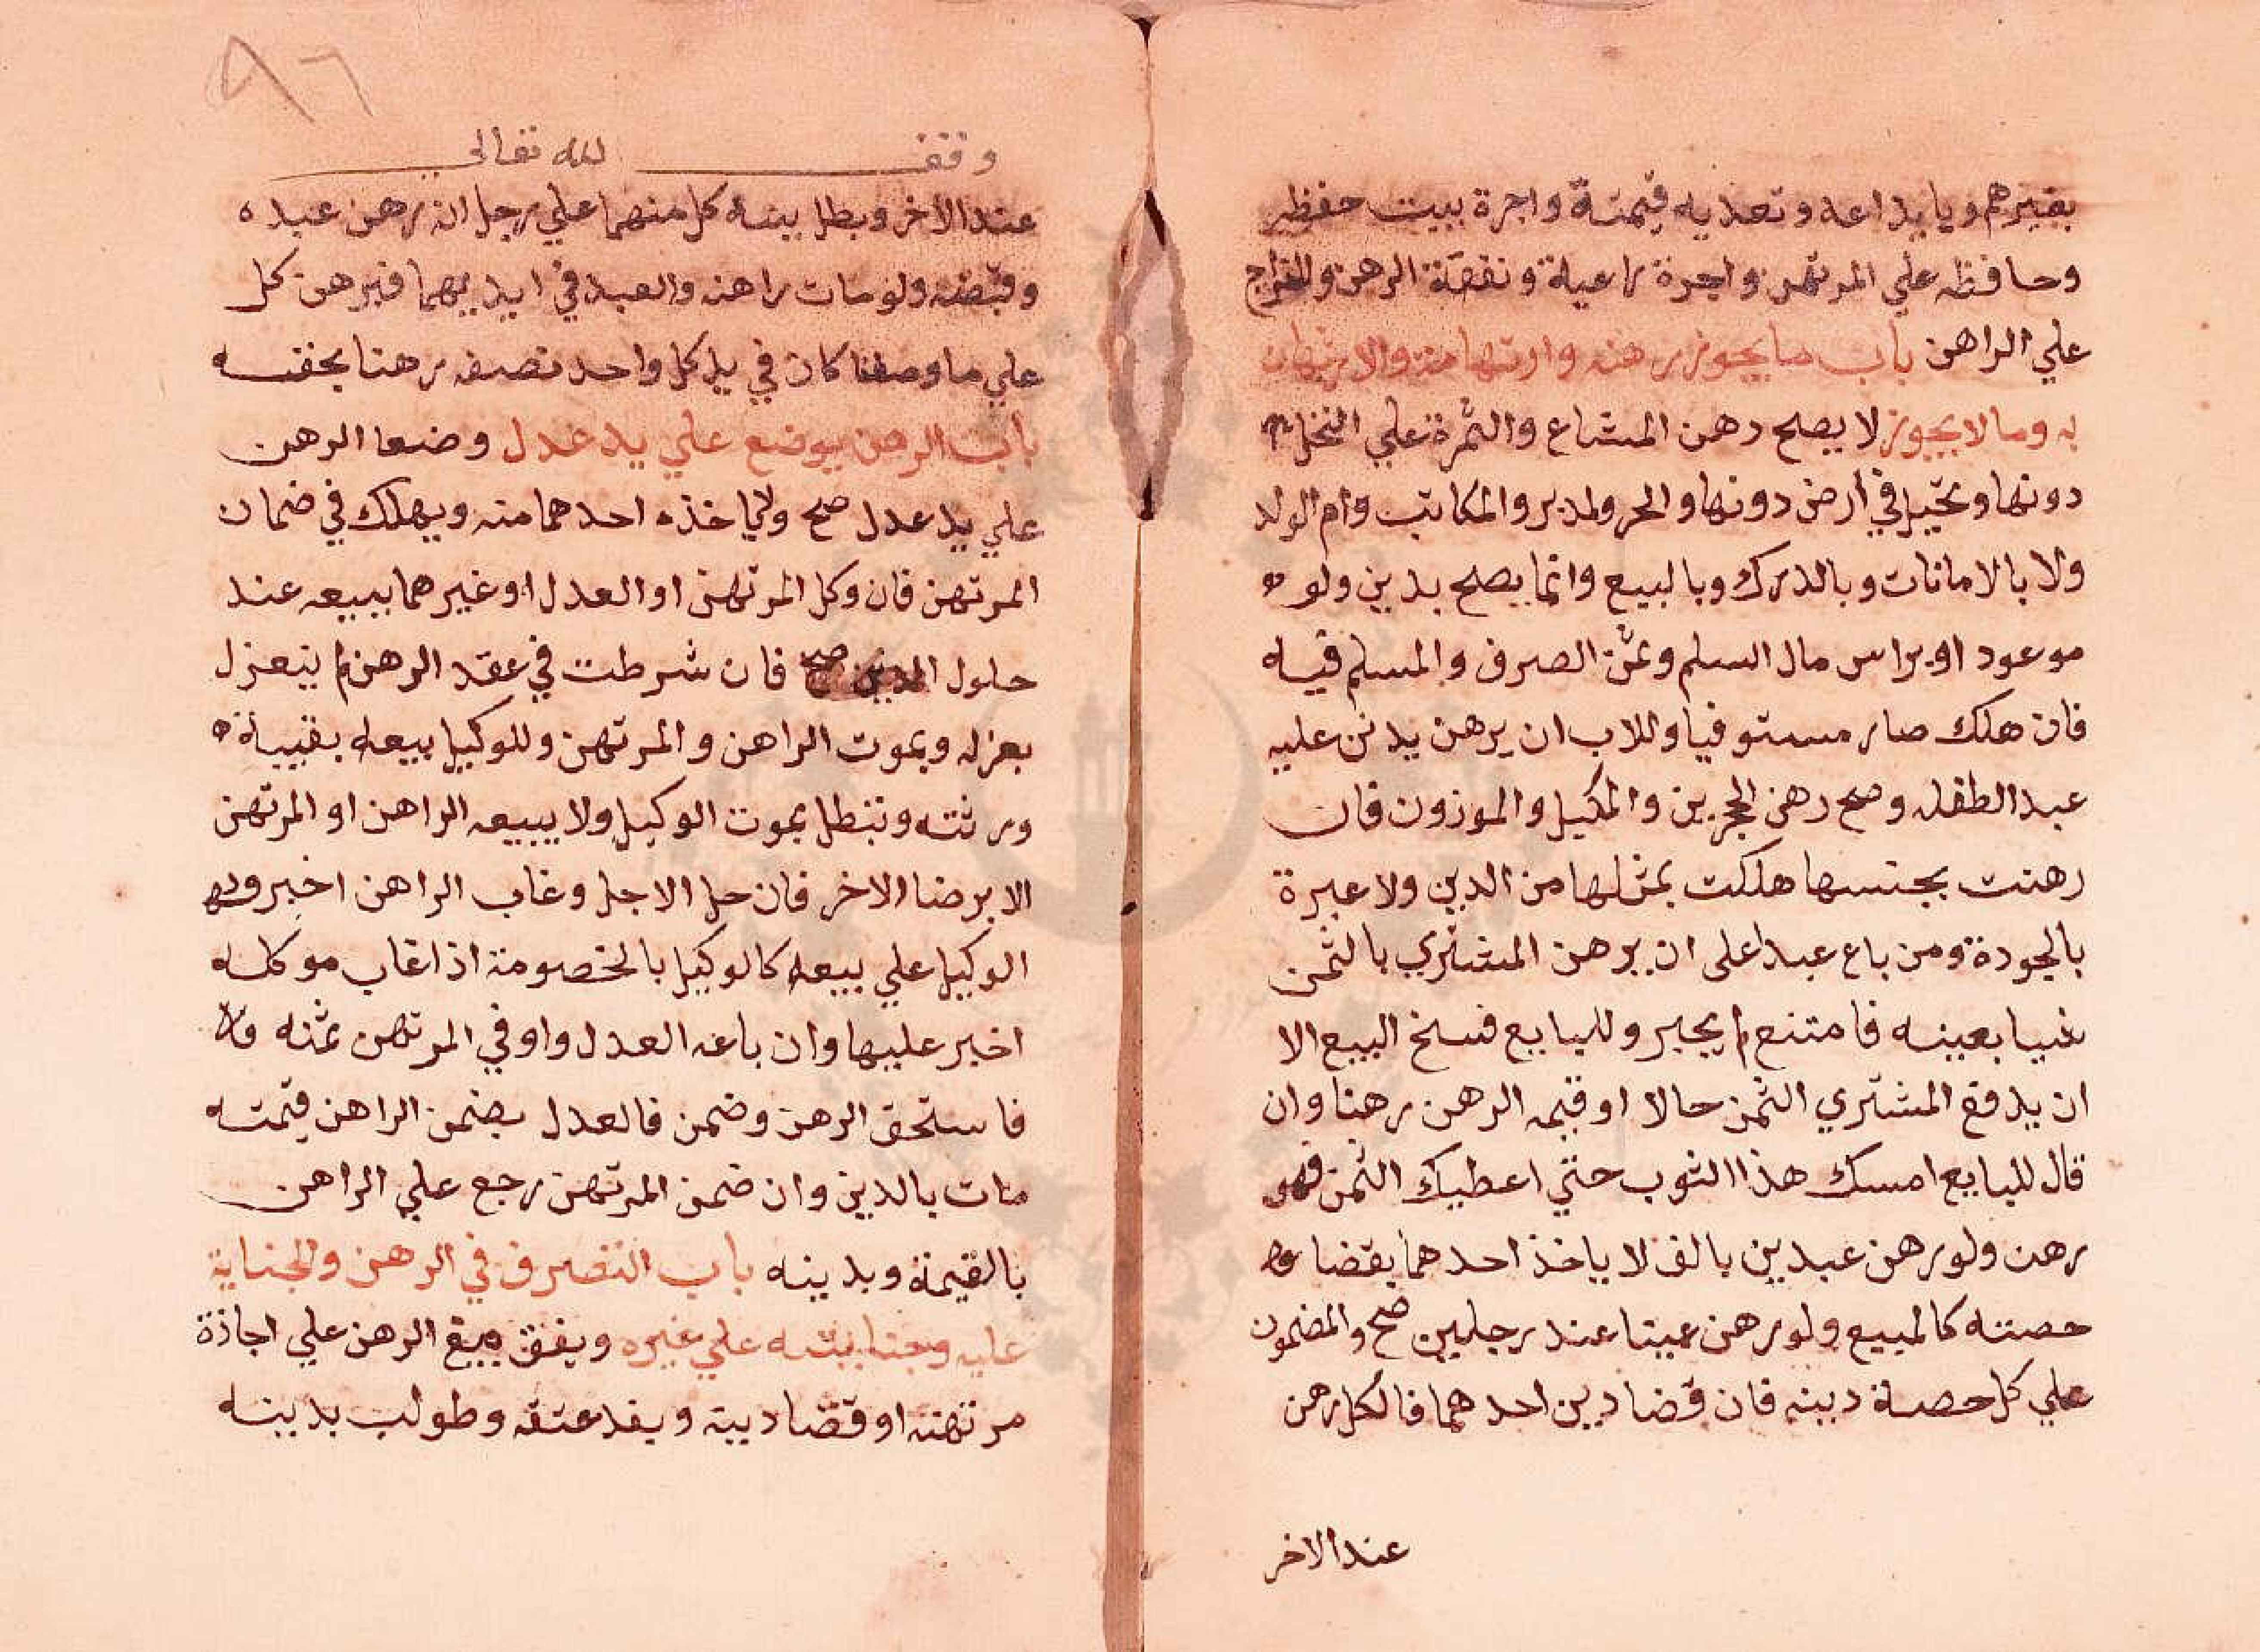 بغيرهم وبايداعه وتعديه قيمته واجرة بيت حفظه
وحافظه علي المرتهن واجرة راعيه ونفقة الرهن والخراج
علي الراهن باب ما يجوز رهنه وارتهانه والارتهان
به وما لا يجوز لا يصلح رهن المشاع والثمرة علي النخل
دونها ونخيل في ارض دونها والحر ولمدبر والمكاتب وام الولد
ولا بالامانات وبالدرك وبالمبيع وانما يصلح بدين ولو
موعود او براس مال السلم وثمن الصرف والمسلم فيه
فان هلك صار مستوفيا وللاب ان يرهن بدين عليه
عبد الطفله وصح رهن الحجرين والمكيل والموزون فان
رهنت بجنسها هلكت بمثلها من الدين ولا عبرة
بالجودة ومن باع عبدا على ان يرهن المشتري بالثمن
شيا بعينه فامتنع لم يجبر وللبايع فسخ البيع الا
ان يدفع المشتري الثمن حالا او قيمه الرهن رهنا وان
قال للبايع امسك هذا الثوب حتي اعطيك الثمن فهو
رهن ولو رهن عبدين بالف لا ياخذ احدهما بقضا
حصته كالمبيع ولو رهن عينا عند رجلين صح والمضمون
علي كل حصة دينه فان قضا دين احدهما فالكل رهن
عند الاخر
٨٦
وقف لله تعالى
عند الاخر وبطل بينه كل منهما علي رجل انه رهن عبده
وقبضه ولو مات راهنه والعبد في ايديهما فبرهن كل
علي ما وصفنا كان في يد كل واحد نصفه رهنا بحقه
باب الرهن يوضع علي يد عدل وضعا الرهن
علي يد عدل صح ولا ياخذه احدهما منه ويهلك في ضمان
المرتهن فان وكل المرتهن او العدل او غيرهما ببيعه عند
حلول الدين صح فان شرطت في عقد الرهن لم ينعزل
بعزله وبموت الراهن والمرتهن وللوكيل بيعه بغيبة
ورثته وتبطل بموت الوكيل ولا يبيعه الراهن او المرتهن
الا برضا الاخر فان حل الاجل وغاب الراهن اخبر
الوكيل علي بيعه كالوكيل بالخصومة اذا غاب موكله
اخبر عليها وان باعه العدل واوفي المرتهن ثمنه
فاستحق الرهن وضمن فالعدل يضمن الراهن قيمته
مات بالدين وان ضمن المرتهن رجع علي الراهن
بالقيمة وبدينه باب التصرف في الرهن والجناية
عليه وجنايته علي غيره ويقف بيع الرهن علي اجازة
مرتهنه او قضا دينه ونفد عتقه وطولب بدينه